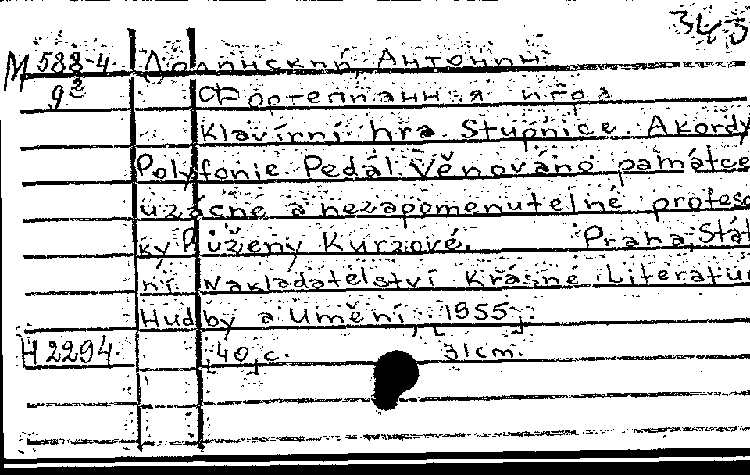 345
М 588-4 Долинский, Антонин
9² Фортепианная игра
Klavírní hra. Stupnice. Akordy
Polyfonie. Pedál. Věnováno památce
vzácné a nezapomenutelné profeso
ky Růženy Kurzové. Praha, Stát
ní Nakladatelství Krásné Literatur
Hudby a Umění, [1955].
Н 2294. [40] с. 31cm.